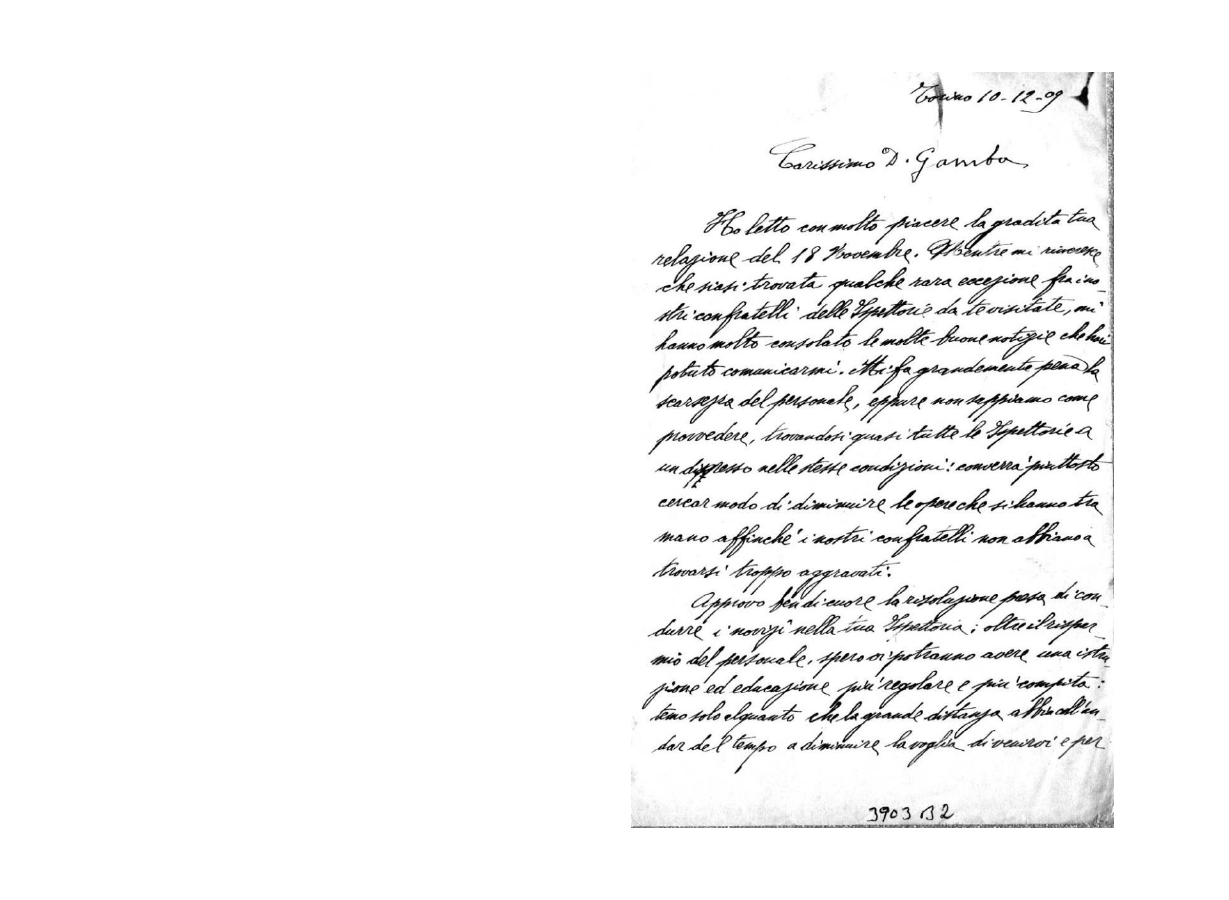 Torino 10-12-09
Carissimo D. Gamba
Ho letto con molto piacere la gradita tua
relazione del 18 Novembre. Mentre mi rincresce
che siasi trovata qualche rara eccezione fra i no-
stri confratelli delle Ispettorie da te visitate, mi
hanno molto consolato le molte buone notizie che hai
potuto comunicarmi. Mi fa grandemente pena la
scarsezza del personale, eppure non sappiamo come
provvedere, trovandosi quasi tutte le Ispettorie a
un dipresso nelle stesse condizioni: converrà piuttosto
cercar modo di diminuire le opere che si hanno tra
mano affinché i nostri confratelli non abbiano a
trovarsi troppo aggravati.
Approvo ben di cuore la risoluzione presa di con-
durre i novizi nella tua Ispettoria; oltre il rispar-
mio del personale, spero vi potranno avere una istru-
zione ed educazione più regolare e più compita:
temo solo alquanto che la grande distanza abbia coll'an-
dar del tempo a diminuire la voglia di venirvi e per
3903 B2